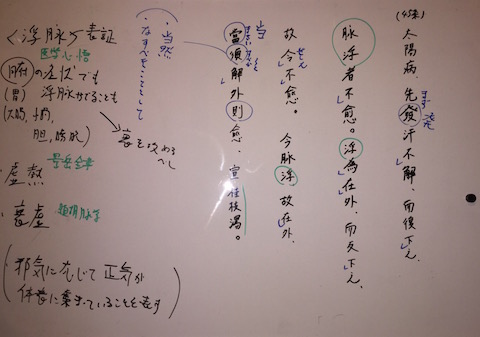 (45条)
太陽病、先發汗不解、而復下之、
まず
脉浮者不愈。浮為在外、而反下之、
故令不愈。今脉浮、故在外、
せしむ
当
當須解外則愈 宜桂枝湯。
・当然
・なすべきこととして
<浮脉>表証
医学心悟
腑の症状でも
(胃) 浮脉がでることも
(大腸、小腸、
胆、膀胱)
裏を攻める
べし
・虚熱 景岳全書
・裏虚 瀕湖脉学
(邪気に応じて正気が
体表に集まっていることを表す)